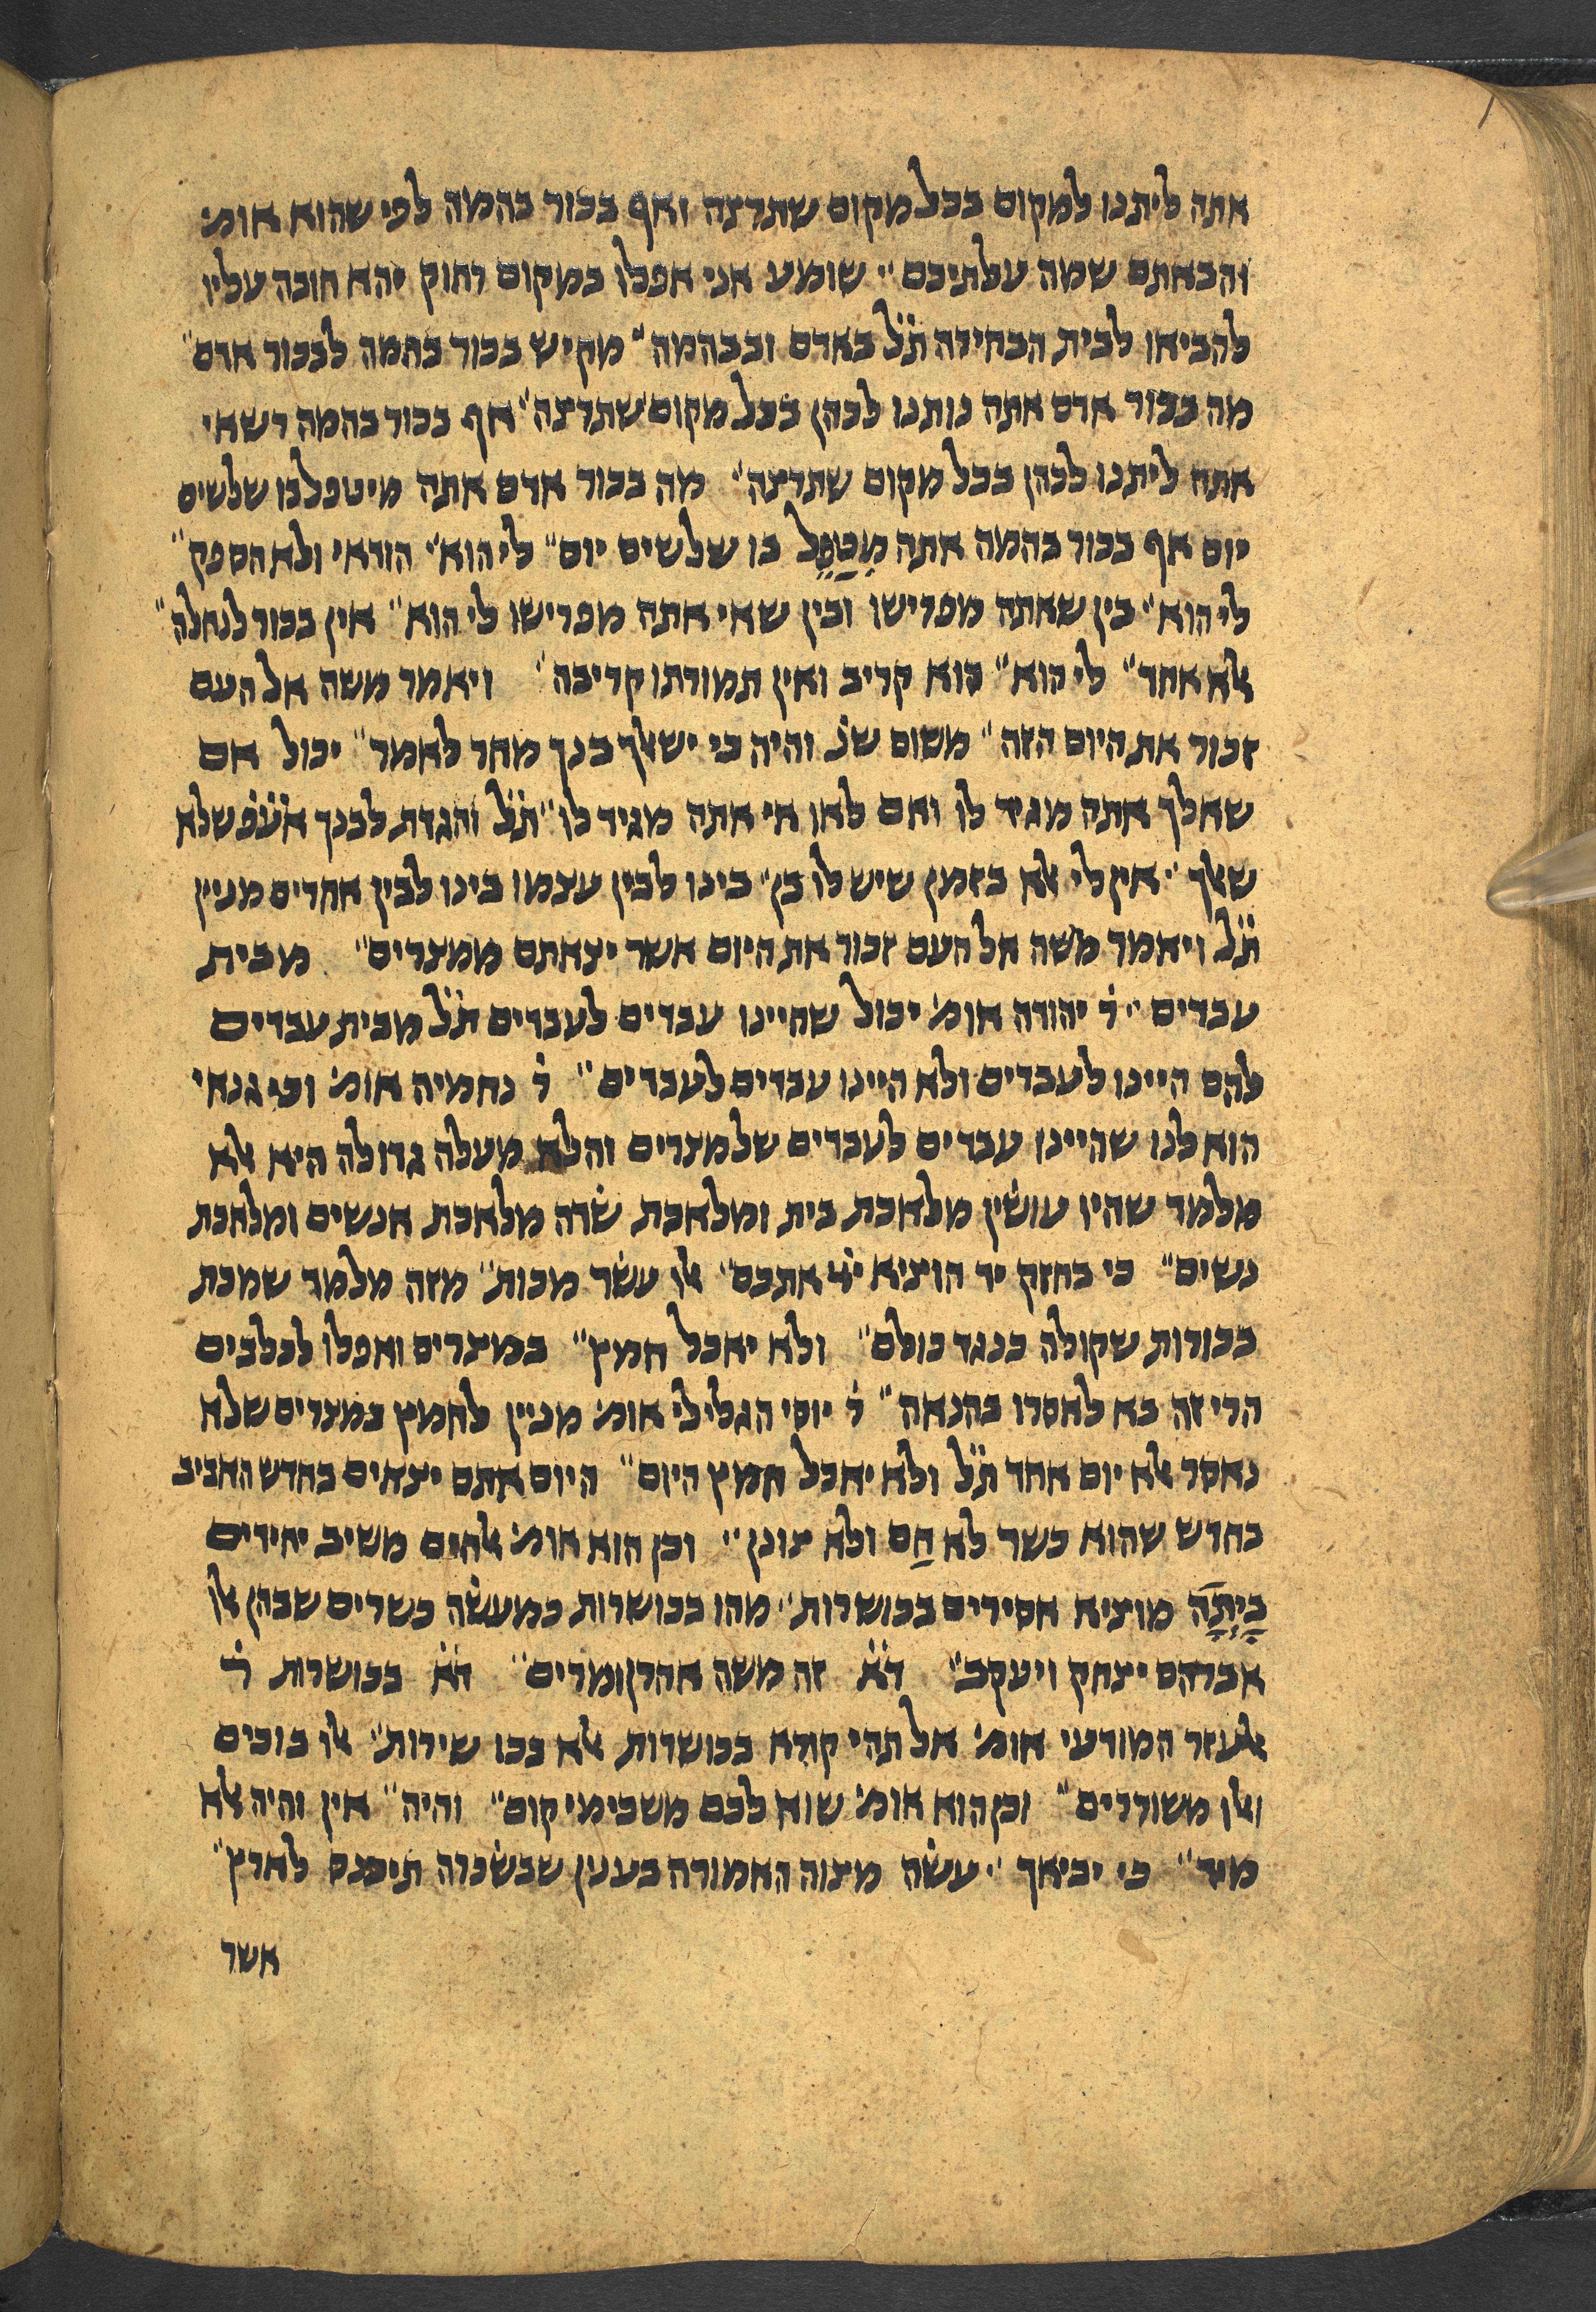 אתה ליתנו למקום בכל מקום שתרצה ואף בכור בהמה לפי שהוא אומ'
והבאתם שמה עלתיכם״ שומע אני אפלו במקום רחוק יהא חובה עליו
להביאו לבית הבחירה ת״ל באדם ובבהמה״ מקיש בכור בהמה לבכור אדם״
מה בכור אדם אתה נותנו לכהן בכל מקום שתרצה״ אף בכור בהמה רשאי
אתה ליתנו לכהן בכל מקום שתרצה״ מה בכור אדם אתה מיטפל בו שלשים
יום אף בכור בהמה אתה מִטַפֵל בו שלשים יום״ לי הוא״ הודאי ולא הספק״
לי הוא״ בין שאתה מפרישו ובין שאי אתה מפרישו לי הוא״ אין בכור לנחלה״
אלא אחד״ לי הוא״ הוא קריב ואין תמורתו קריבה״ ויאמר משה אל העם
זכור את היום הזה״ משום שנ' והיה כי ישאלך בנך מחר לאמר״ יכול אם
שאלך אתה מגיד לו ואם לאו אי אתה מגיד לו״ ת״ל והגדת לבנך אע״פ שלא
שאלך״ אין לי אלא בזמן שיש לו בן״ בינו לבין עצמו בינו לבין אחרים מנין
ת״ל ויאמר משה אל העם זכור את היום אשר יצאתם ממצרים״ מבית
עבדים״ ר' יהודה אומ' יכול שהיינו עבדים לעבדים ת״ל מבית עבדים
להם היינו לעבדים ולא היינו עבדים לעבדים״ ר' נחמיה אומ' וכי גנאי
הוא לנו שהיינו עבדים לעבדים של מצרים והלא מעלה גדולה היא אלא
מלמד שהיו עושין מלאכת בית ומלאכת שדה מלאכת אנשים ומלאכת
נשים״ כי בחזק יד הוציא ייי אתכם״ אלו עשר מכות״ מזה מלמד שמכת
בכורות שקולה כנגד כולם״ ולא יאכל חמץ״ במצרים ואפלו לכלבים
הרי זה בא לאסרו בהנאה״ ר' יוסי הגלילי אומ' מנין לחמץ במצרים שלא
נאסר אלא יום אחד ת״ל ולא יאכל חמץ היום״ היום אתם יצאים בחדש האביב
בחדש שהוא כשר לא חַם ולא צונן״ וכן הוא אומ' אלהים משיב יחידים
בַיְתָה מוציא אסירים בכושרות״ מהו בכושרות כמעשה כשרים שבהן אלו
אברהם יצחק ויעקב״ ד״א זה משה אהרן ומרים״ ד״א בכושרות ר'
אלעזר המודעי אומ' אל תהי קורא בכושרות אלא בכו שירות״ אלו בוכים
ואלו משוררים״ וכן הוא אומ' שוא לכם משכימי קום״ והיה״ אין והיה אלא
מיד״ כי יביאך״ עשה מצוה האמורה בענין שבשכרה תיכנס לארץ״
אשר